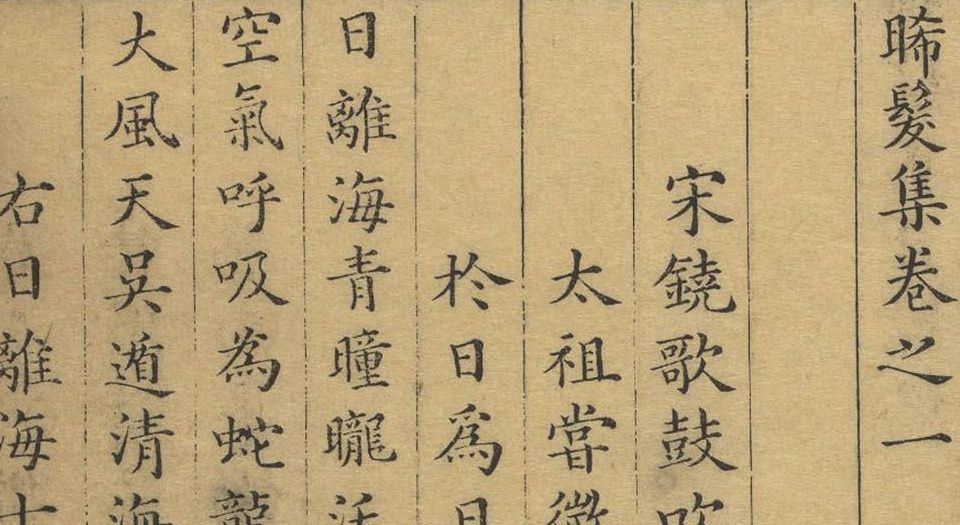 晞髮集卷之一
宋鐃歌鼓吹
太祖嘗微
於日為日
日離海青曈曨
空氣呼吸為蛇龍
大風天吳遁清海
右日離海十